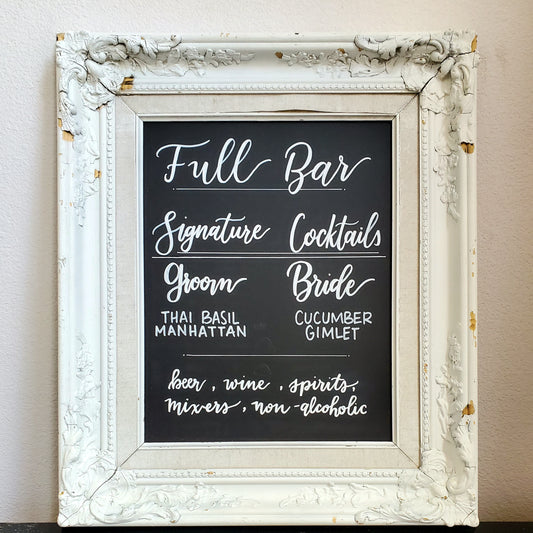 Full Bar
Signature Cocktails
Groom Bride
THAI BASIL CUCUMBER
MANHATTAN GIMLET
beer, wine, spirits,
mixers, non-alcoholic